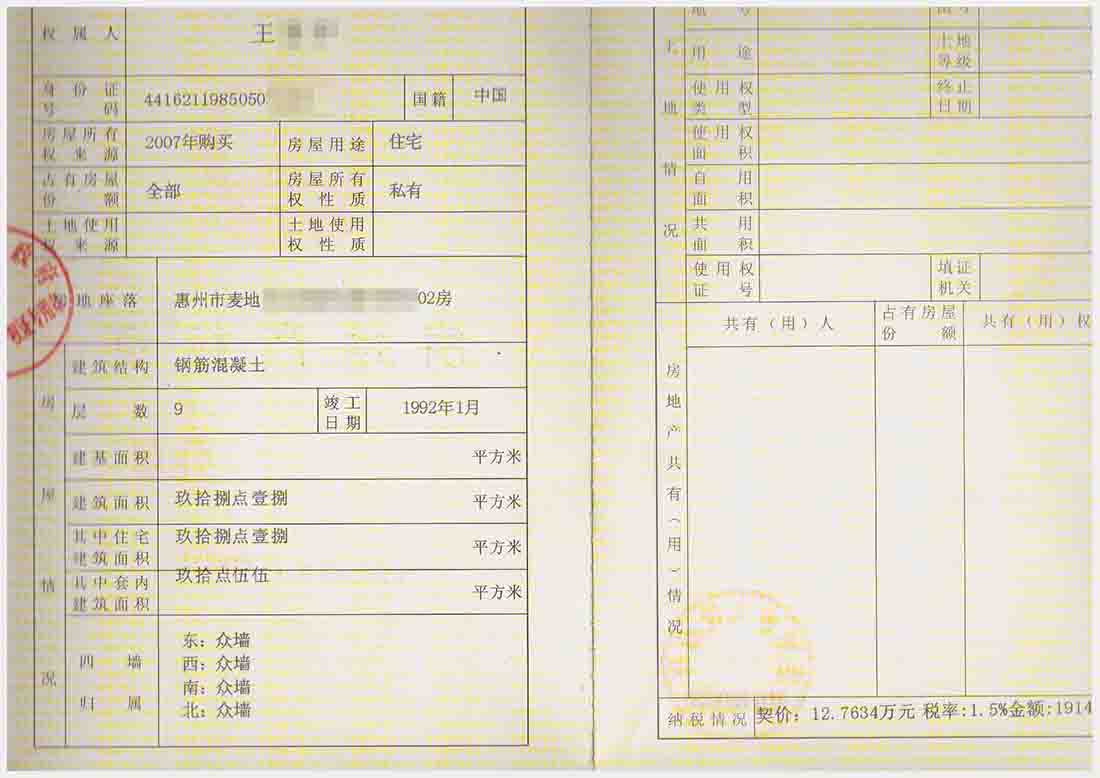 权属人 王
身份证号码 4416211985050 国籍 中国
房屋所有权来源 2007年购买 房屋用途 住宅
占有房屋份额 全部 房屋所有权性质 私有
土地使用权来源 土地使用权性质
房地座落 惠州市麦地 02房
房屋情况
建筑结构 钢筋混凝土
层数 9 竣工日期 1992年1月
建基面积 平方米
建筑面积 玖拾捌点壹捌 平方米
其中住宅建筑面积 玖拾捌点壹捌 平方米
其中套内建筑面积 玖拾点伍伍 平方米
四墙归属
东：众墙
西：众墙
南：众墙
北：众墙
土地情况
地号
用途 土地等级
使用权类型 终止日期
使用权面积
自用面积
共用面积
使用权证号 填证机关
房地产共有（用）情况
共有（用）人 占有房屋份额 共有（用）权
纳税情况 契价：12.7634万元 税率:1.5%金额:1914